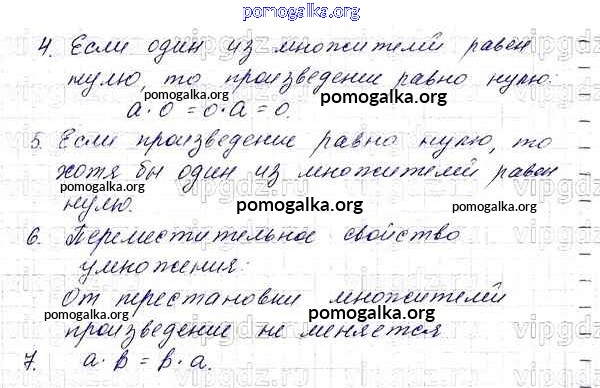 pomogalka.org
4. Если один из множителей равен
нулю, то произведение равно нулю.
pomogalka.org
a · 0 = 0 · a = 0.
pomogalka.org
5. Если произведение равно нулю, то
хотя бы один из множителей равен
pomogalka.org
нулю.
pomogalka.org
pomogalka.org
6. Переместительное свойство
умножения:
От перестановки множителей
pomogalka.org
pomogalka.org
произведение не меняется
7. a · в = в · a.
vipgdz.ru